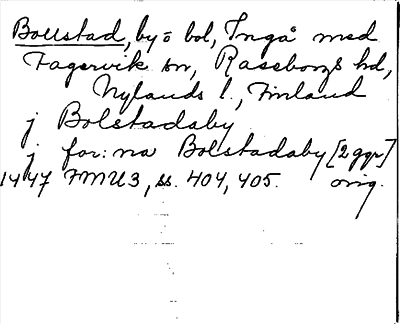 Bollstad, by o bol, Ingå med
Fagervik sn, Raseborgs hd,
Nylands l., Finland
j Bolstadaby
j for: na Bolstadaby [2 ggr]
1447 FMU 3, ss. 404, 405. orig.